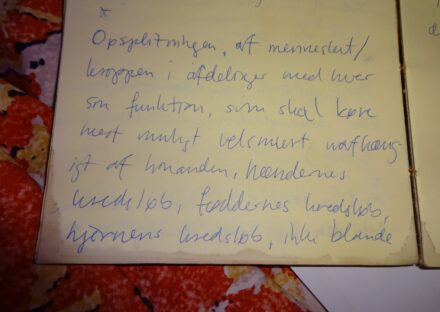 *
Opsplitningen af mennesket/
kroppen i afdelinger med hver
sin funktion, som skal køre
mest muligt velsmurt uafhæng-
igt af hinanden, hændernes
kredsløb, føddernes kredsløb,
hjernens kredsløb, ikke blande